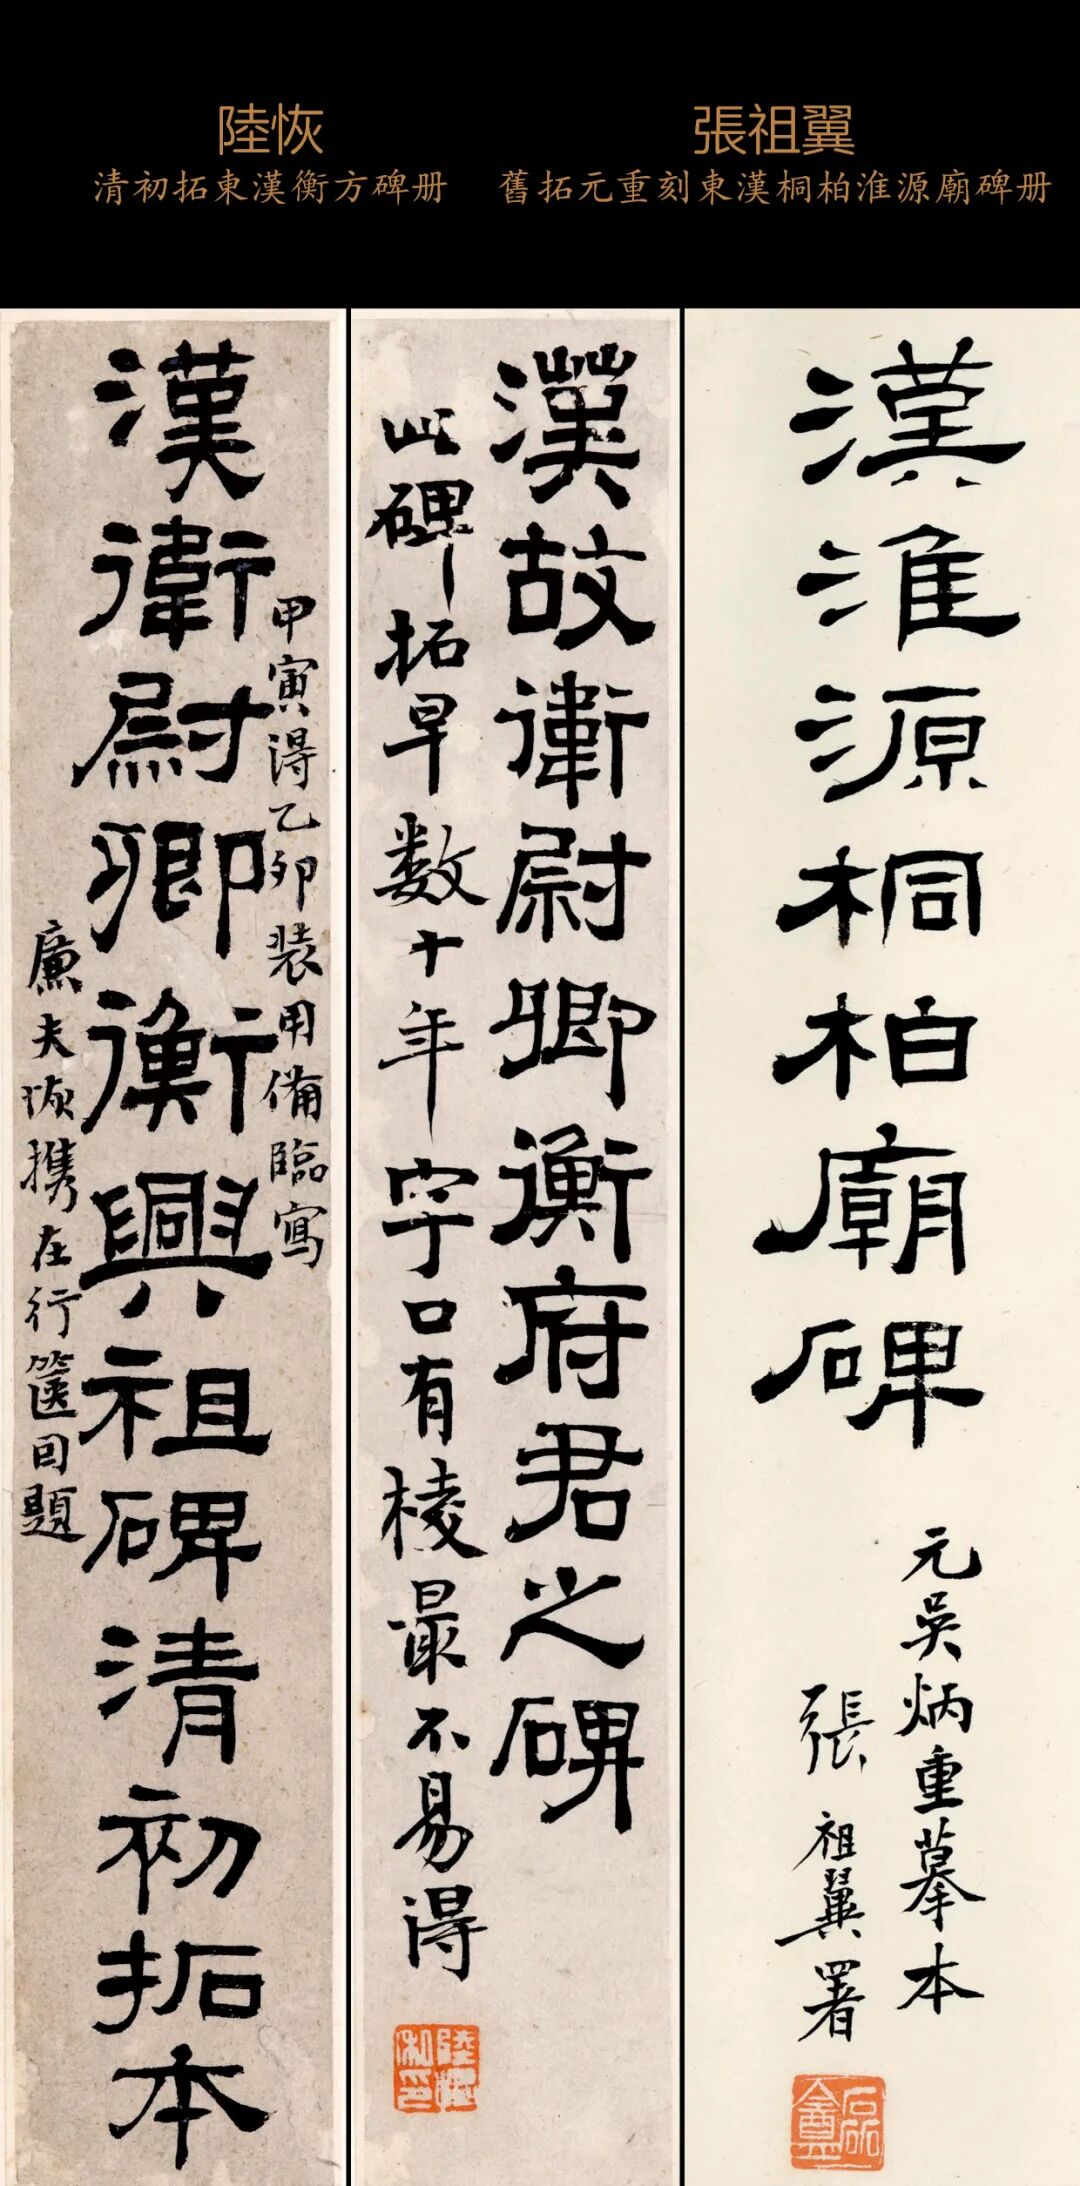 陸恢
清初拓東漢衡方碑册
張祖翼
舊拓元重刻東漢桐柏淮源廟碑册
漢淮源桐柏廟碑
元吳炳重摹本
張祖翼署
漢故衛尉卿衡府君之碑
此碑拓早數十年字口有棱最不易得
陸恢私印
漢衛尉卿衡興祖碑清初拓本
甲寅得乙卯裝用備臨寫
廉夫恢携在行篋因題